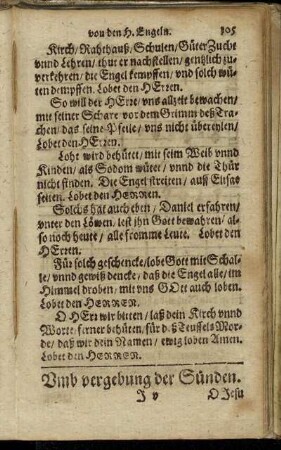 von den H. Engeln. 105
Kirch/Rahthauß/Schulen/Güter Zucht
vnnd Lehren/ thut er nachstellen/ gentzlich zu-
verkehren/ die Engel kempffen/ vnd solch wü-
ten dempffen. Lobet den HErren.
So will der HErr/ vns allzeit bewachen/
mit seiner Schare vor dem Grimm deß Tra-
chen/ das seine Pfeile/ vns nicht übereylen/
Lobet den HErren.
Loht wird behütet/ mit seim Weib vnnd
Kinden/ als Sodom wütet/ vnnd die Thür
nicht finden. Die Engel streiten/ auß Einsat
seiten. Lobet den HERREN.
Solchs hat auch eben/ Daniel erfahren/
vnter den Löwen/ ließ ihn Gott bewahren/ al-
so noch heute/ alle fromme Leute. Lobet den
HErren.
Für solch geschencke/lobe Gott mit Schal-
le/ vnnd gewiß dencke/ daß die Engel alle/ im
Himmel droben/ mit vns GOtt auch loben.
Lobet den HERREN.
O HErr wir bitten/ laß dein Kirch vnnd
Worte/ ferner behüten/ für d.ß Teuffels Mor-
de/ daß wir dein Namen/ ewig loben Amen.
Lobet den HERREN.
Vmb vergebung der Sünden.
J v O Jesu